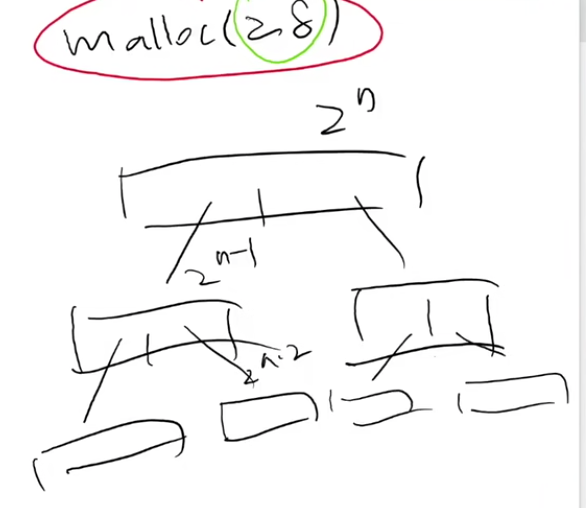 malloc(28)
2^n
2^n-1
2^n-2